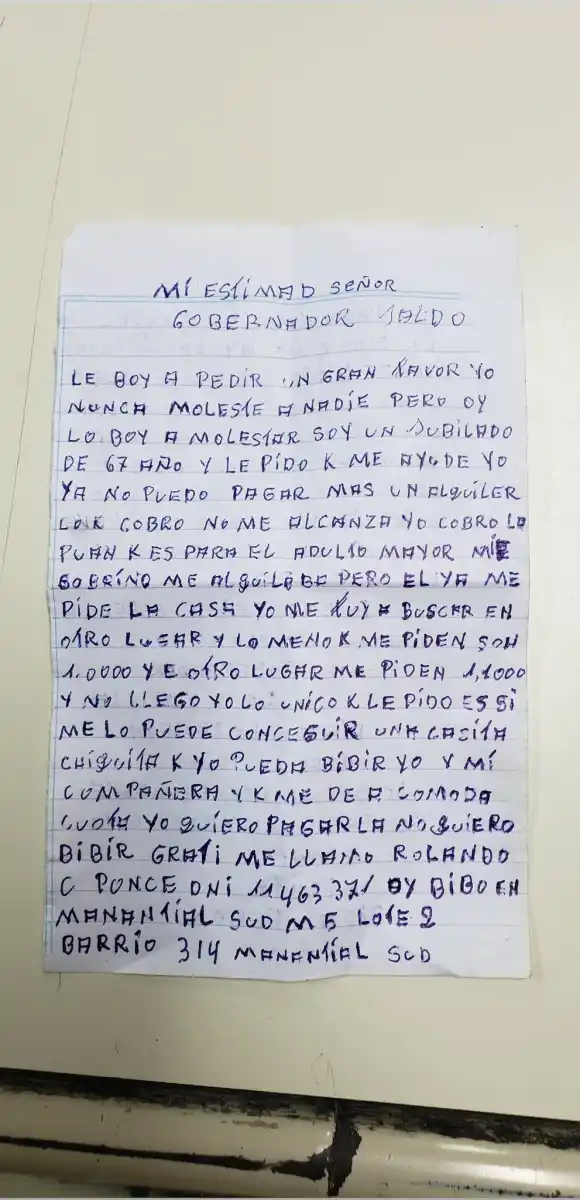 MI ESTIMAD SEÑOR
GOBERNADOR JALDO
LE BOY A PEDIR UN GRAN FAVOR YO
NUNCA MOLESTE A NADIE PERO OY
LO BOY A MOLESTAR SOY UN JUBILADO
DE 67 AÑO Y LE PIDO K ME AYUDE YO
YA NO PUEDO PAGAR MAS UN ALQUILER
LO K COBRO NO ME ALCANZA YO COBRO LA
PUAN K ES PARA EL ADULTO MAYOR MI
SOBRINO ME ALQUILABE PERO EL YA ME
PIDE LA CASA YO ME FUY A BUSCAR EN
OTRO LUGAR Y LO MENO K ME PIDEN SON
1.0000 Y E OTRO LUGAR ME PIDEN 1,1000
Y NO LLEGO YO LO UNICO K LE PIDO ES SI
ME LO PUEDE CONCEGUIR UNA CASITA
CHIGUITA K YO PUEDA BIBIR YO Y MI
COMPAÑERA Y K ME DE A COMODA
CUOTA YO QUIERO PAGARLA NO QUIERO
BIBIR GRATI ME LLAMO ROLANDO
C PONCE DNI 11463371 OY BIBO EN
MANANTIAL SUD M5 LOTE 2
BARRIO 314 MANANTIAL SUD